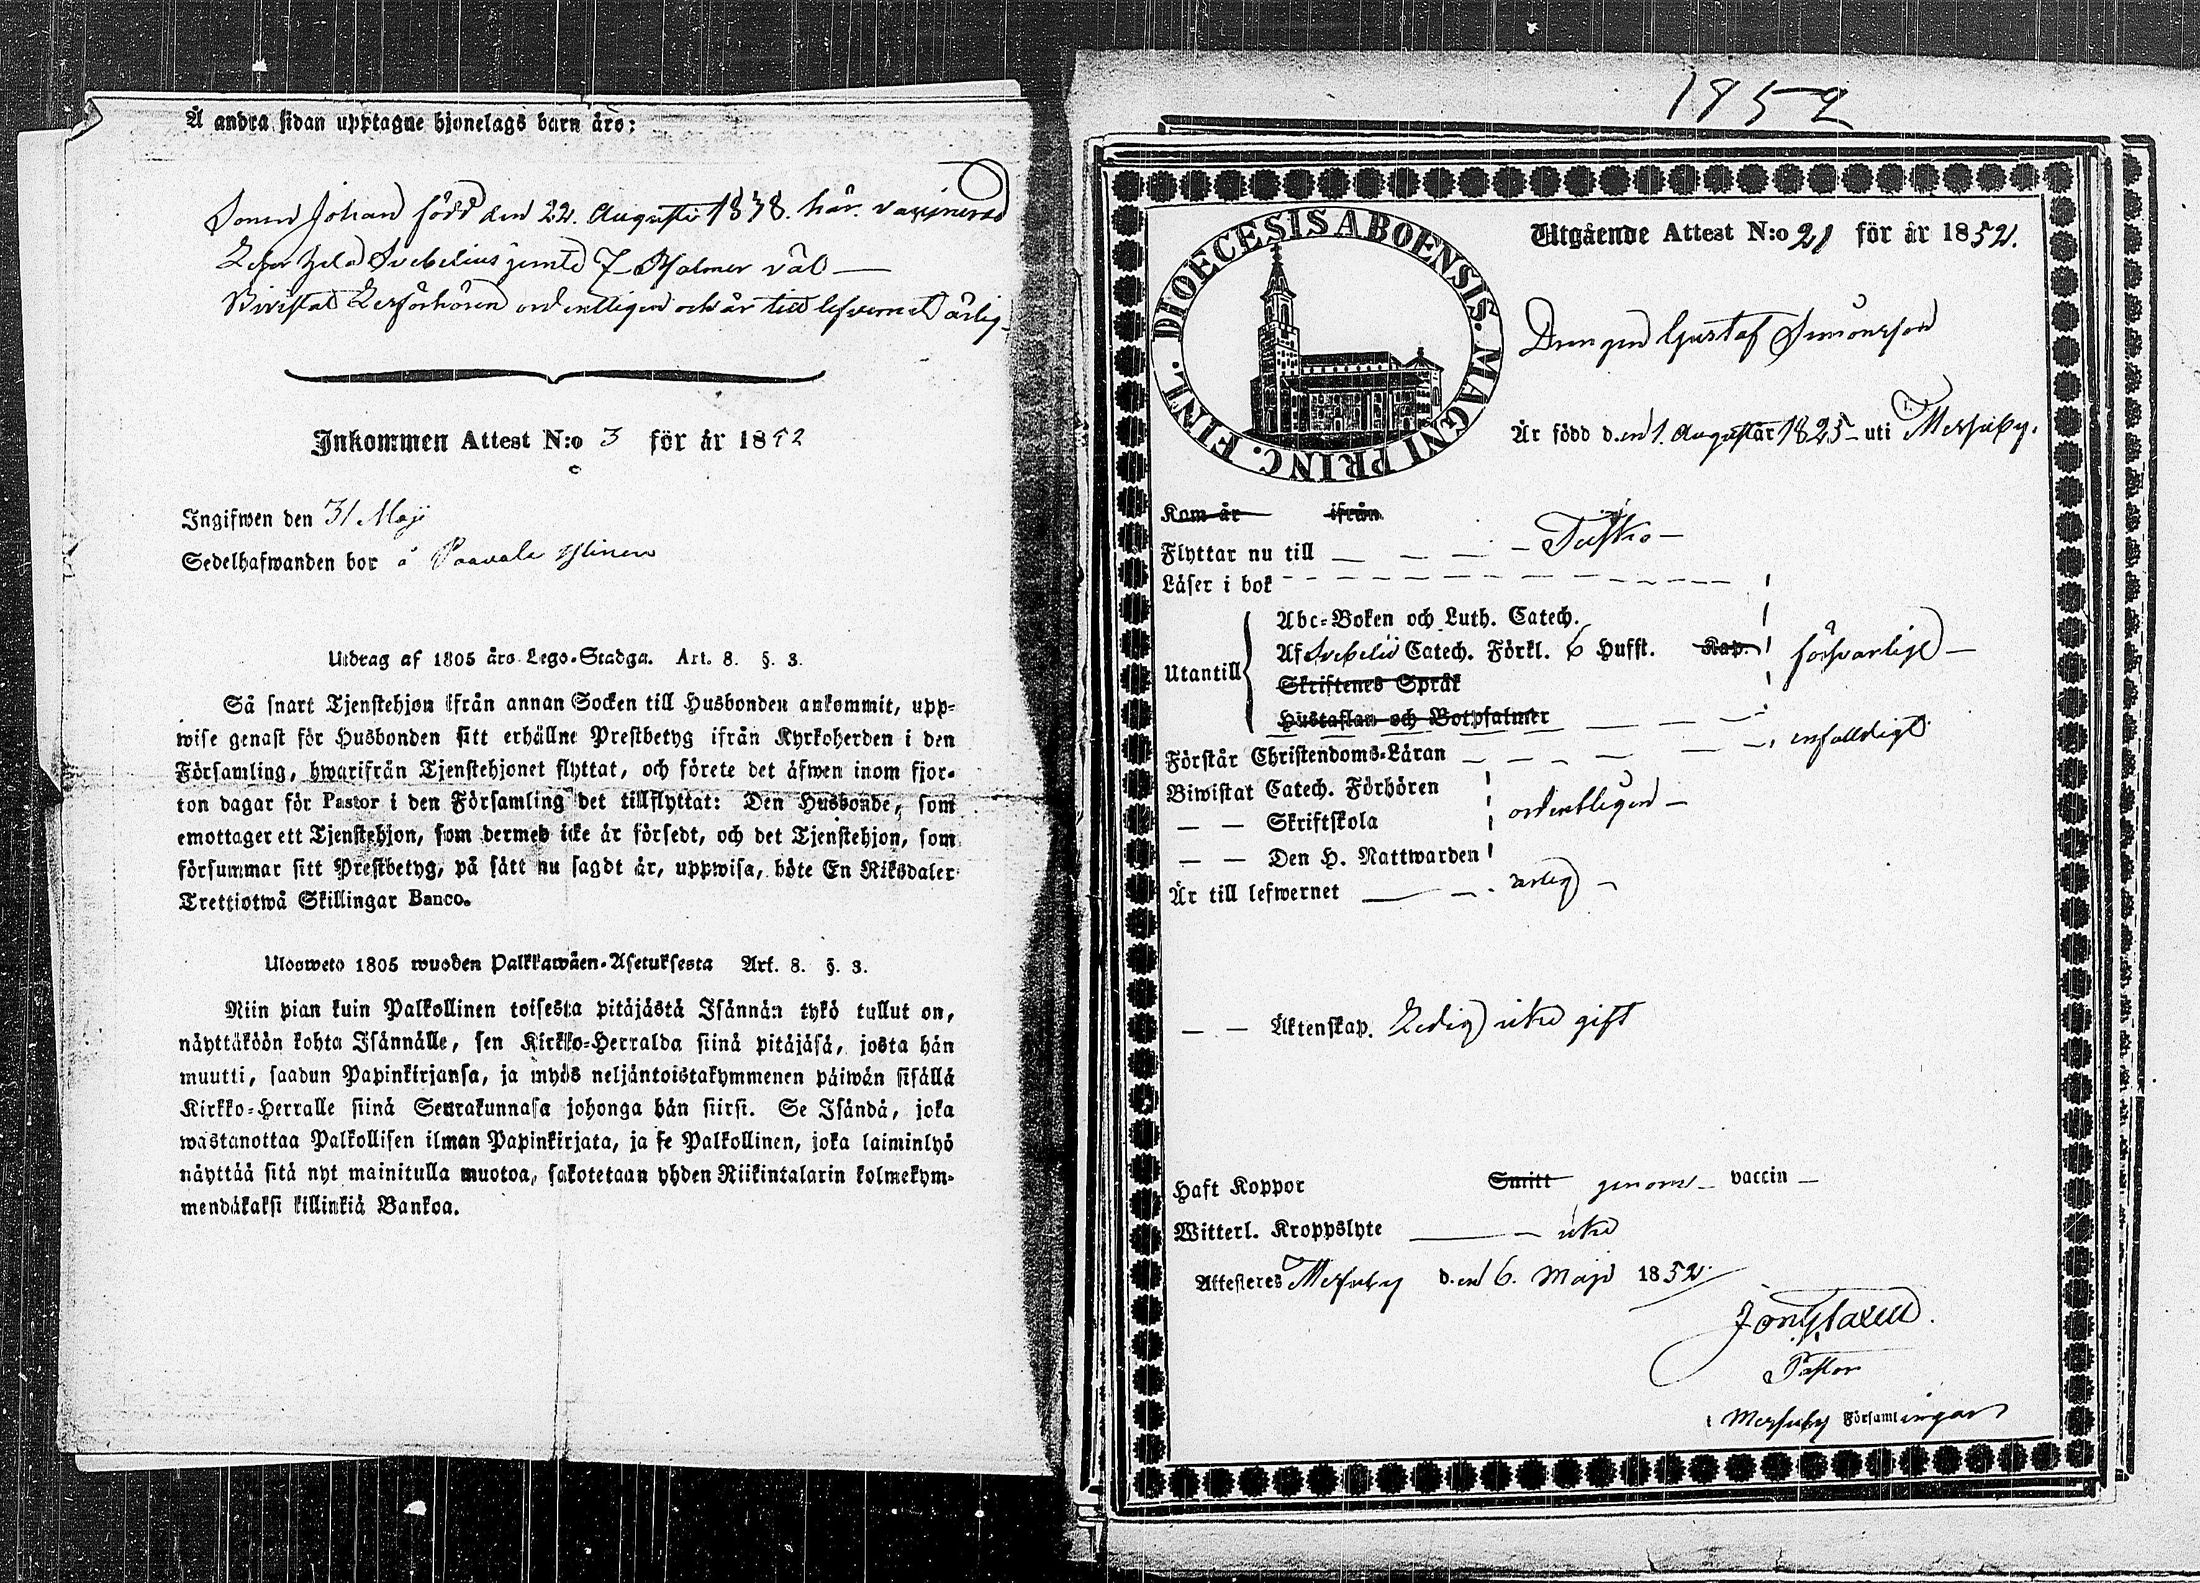 Å andra sidan upptagne hjonelags barn äro:
Sonen Johan född den 22. Augusti 1838. har. vaccinerad
Svebelius jemte 7 Psalmer väl —
Bivistat Läsförhören ordentligen och är till lefvernet ärlig.
Inkommen Attest N:o 3 för år 1852
Ingifwen den 31 Maji
Sedelhafwanden bor å Paavala
Utdrag af 1805 års Lego-Stadga. Art. 8. §. 3.
Så snart Tjenstehjon ifrån annan Socken till Husbonden ankommit, upp-
wise genast för Husbonden sitt erhållne Prestbetyg ifrån Kyrkoherden i den
Församling, hwarifrån Tjenstehjonet flyttat, och förete det äfwen inom fjor-
ton dagar för Pastor i den Församling det tillflyttat: Den Husbonde, som
emottager ett Tjenstehjon, som dermed icke är försedt, och det Tjenstehjon, som
försummar sitt Prestbetyg, på sätt nu sagdt är, uppwisa, böte En Riksdaler
Trettiotwå Skillingar Banco.
Ulosweto 1805 wuoden Palkkawäen-Asetuksesta Art. 8. §. 3.
Niin pian kuin Palkollinen toisesta pitäjästä Isännän tykö tullut on,
näyttäköön kohta Isännälle, sen Kirkko-Herralda siinä pitäjäsä, josta hän
muutti, saadun Papinkirjansa, ja myös neljäntoistakymmenen päiwän sisällä
Kirkko-Herralle siinä Seurakunnasa johonga hän siirsi. Se Isändä, joka
wastanottaa Palkollisen ilman Papinkirjata, ja se Palkollinen, joka laiminlyö
näyttää sitä nyt mainitulla muotoa, sakotetaan yhden Riikintalarin kolmekym-
mendäkaksi killinkiä Bankoa.
1852
DIOECESIS ABOENSIS. MAGNI PRINC. FINL.
Utgående Attest N:o 21 för år 1852.
Drengen Gustaf Simonsson
Är född d.en 1. Augusti år 1825 – uti Messuby.
Kom år ifrån
Flyttar nu till — — — –
Läser i bok
Abc-Boken och Luth. Catech.
Utantill Af Svebelii Catech. Förkl. 6 Hufst. Kap. försvarligt —
Skriftenes Språk
Hustaflan och Botpsalmer
Förstår Christendoms-Läran — — — enfalldigt
Biwistat Catech. Förhören
— — Skriftskola ordentligen —
— — Den H. Nattwarden
Är till lefwernet — — ärlig –
— — Äktenskap. Ledig icke gift
Haft Koppor Smitt genom – vaccin –
Witterl. Kroppslyte —— icke
Attesteres Messuby d.en 6. Maji 1852.
Pastor
i Messuby Församlingar